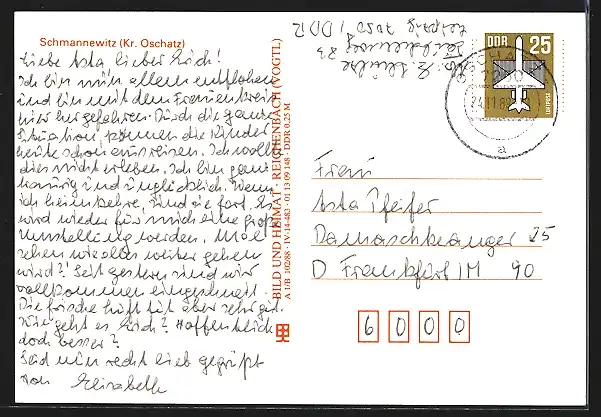 Schmannewitz (Kr. Oschatz)
Liebe Asta lieber Erich!
Ich bin nun allem entflohen
und bin mit dem Frauenkreis
hier hergefahren. Durch die ganze
Situation, können die Kinder
heute schon ausreisen. Ich wollte
dies nicht erleben. Ich bin ganz
traurig und unglücklich. Wenn
ich heimkehre, sind sie fort. Es
wird wieder für mich eine große
Umstellung werden. Mal
sehen wie alles weiter gehen
wird? Seit gestern sind wir
vollkommen eingeschneit.
Die frische Luft tut aber sehr gut.
Wie geht es Euch? Hoffentlich
doch besser?
Seid nun recht lieb gegrüßt
von Elisabeth
BILD UND HEIMAT REICHENBACH (VOGTL)
A 1/B 102/88 · IV-14-483 · 01 13 09 148 · DDR 0,25 M
Leipzig 7050, DDR
DDR 25
LUFTPOST
a
Frau
Asta Pfeifer
Damaschkeanger 25
D Frankfurt/M 90
6000